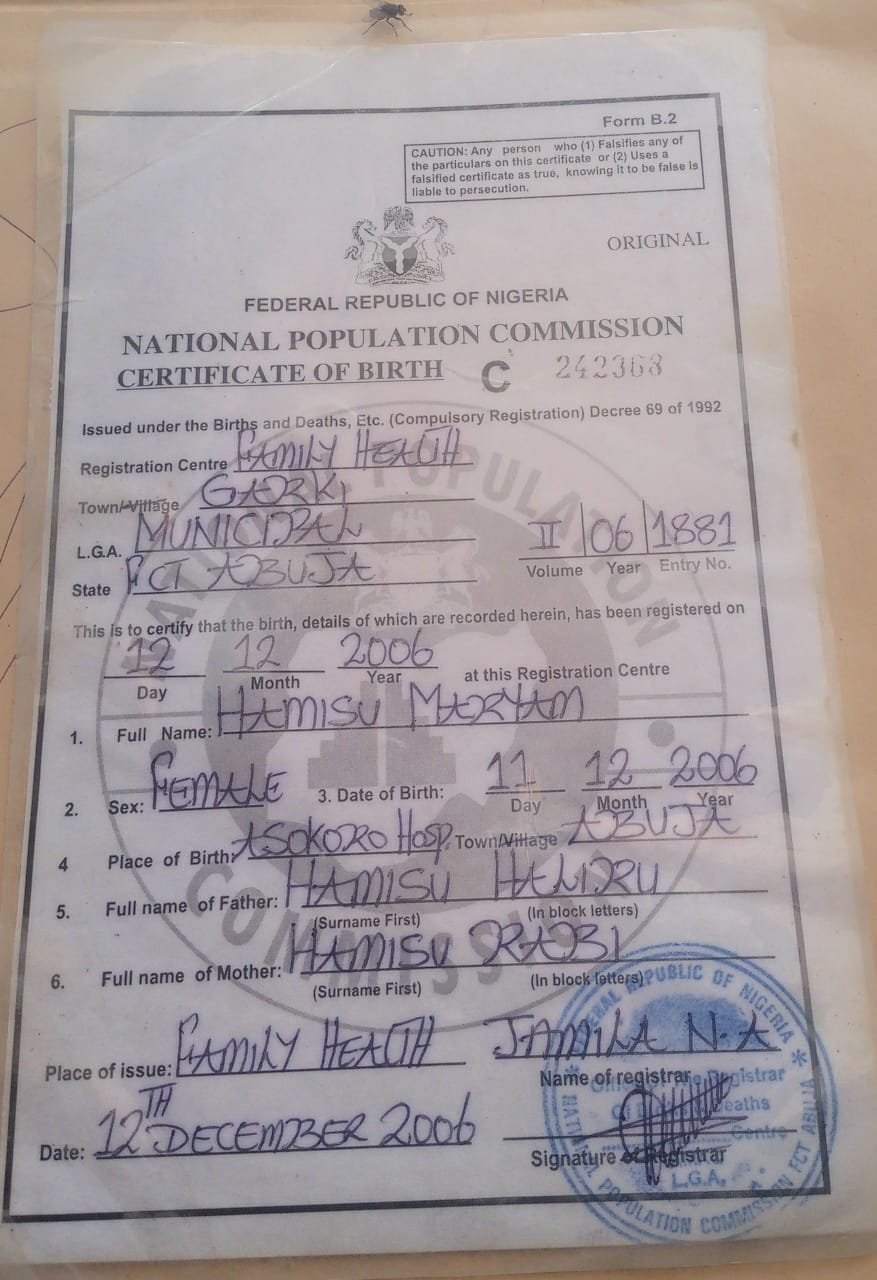 Form B.2
CAUTION: Any person who (1) Falsifies any of
the particulars on this certificate or (2) Uses a
falsified certificate as true, knowing it to be false is
liable to persecution.
ORIGINAL
FEDERAL REPUBLIC OF NIGERIA
NATIONAL POPULATION COMMISSION
CERTIFICATE OF BIRTH C 242368
Issued under the Births and Deaths, Etc. (Compulsory Registration) Decree 69 of 1992
Registration Centre FAMILY HEALTH
Town/Village GARKI
L.G.A. MUNICIPAL
State FCT ABUJA
II 06 1881
Volume Year Entry No.
This is to certify that the birth, details of which are recorded herein, has been registered on
12 12 2006 at this Registration Centre
Day Month Year
1. Full Name: HAMISU MARYAM
2. Sex: FEMALE 3. Date of Birth: 11 12 2006
Day Month Year
4 Place of Birth: ASOKORO HOSP. Town/Village ABUJA
5. Full name of Father: HAMISU HALIRU
(Surname First) (In block letters)
6. Full name of Mother: HAMISU RABI
(Surname First) (In block letters)
Place of issue: FAMILY HEALTH JAMILA N.A
Name of registrar
Date: 12TH DECEMBER 2006
Signature of Registrar
NATIONAL POPULATION COMMISSION
FEDERAL REPUBLIC OF NIGERIA
Registrar
Deaths
Centre
L.G.A.
NATIONAL POPULATION COMMISSION FCT ABUJA